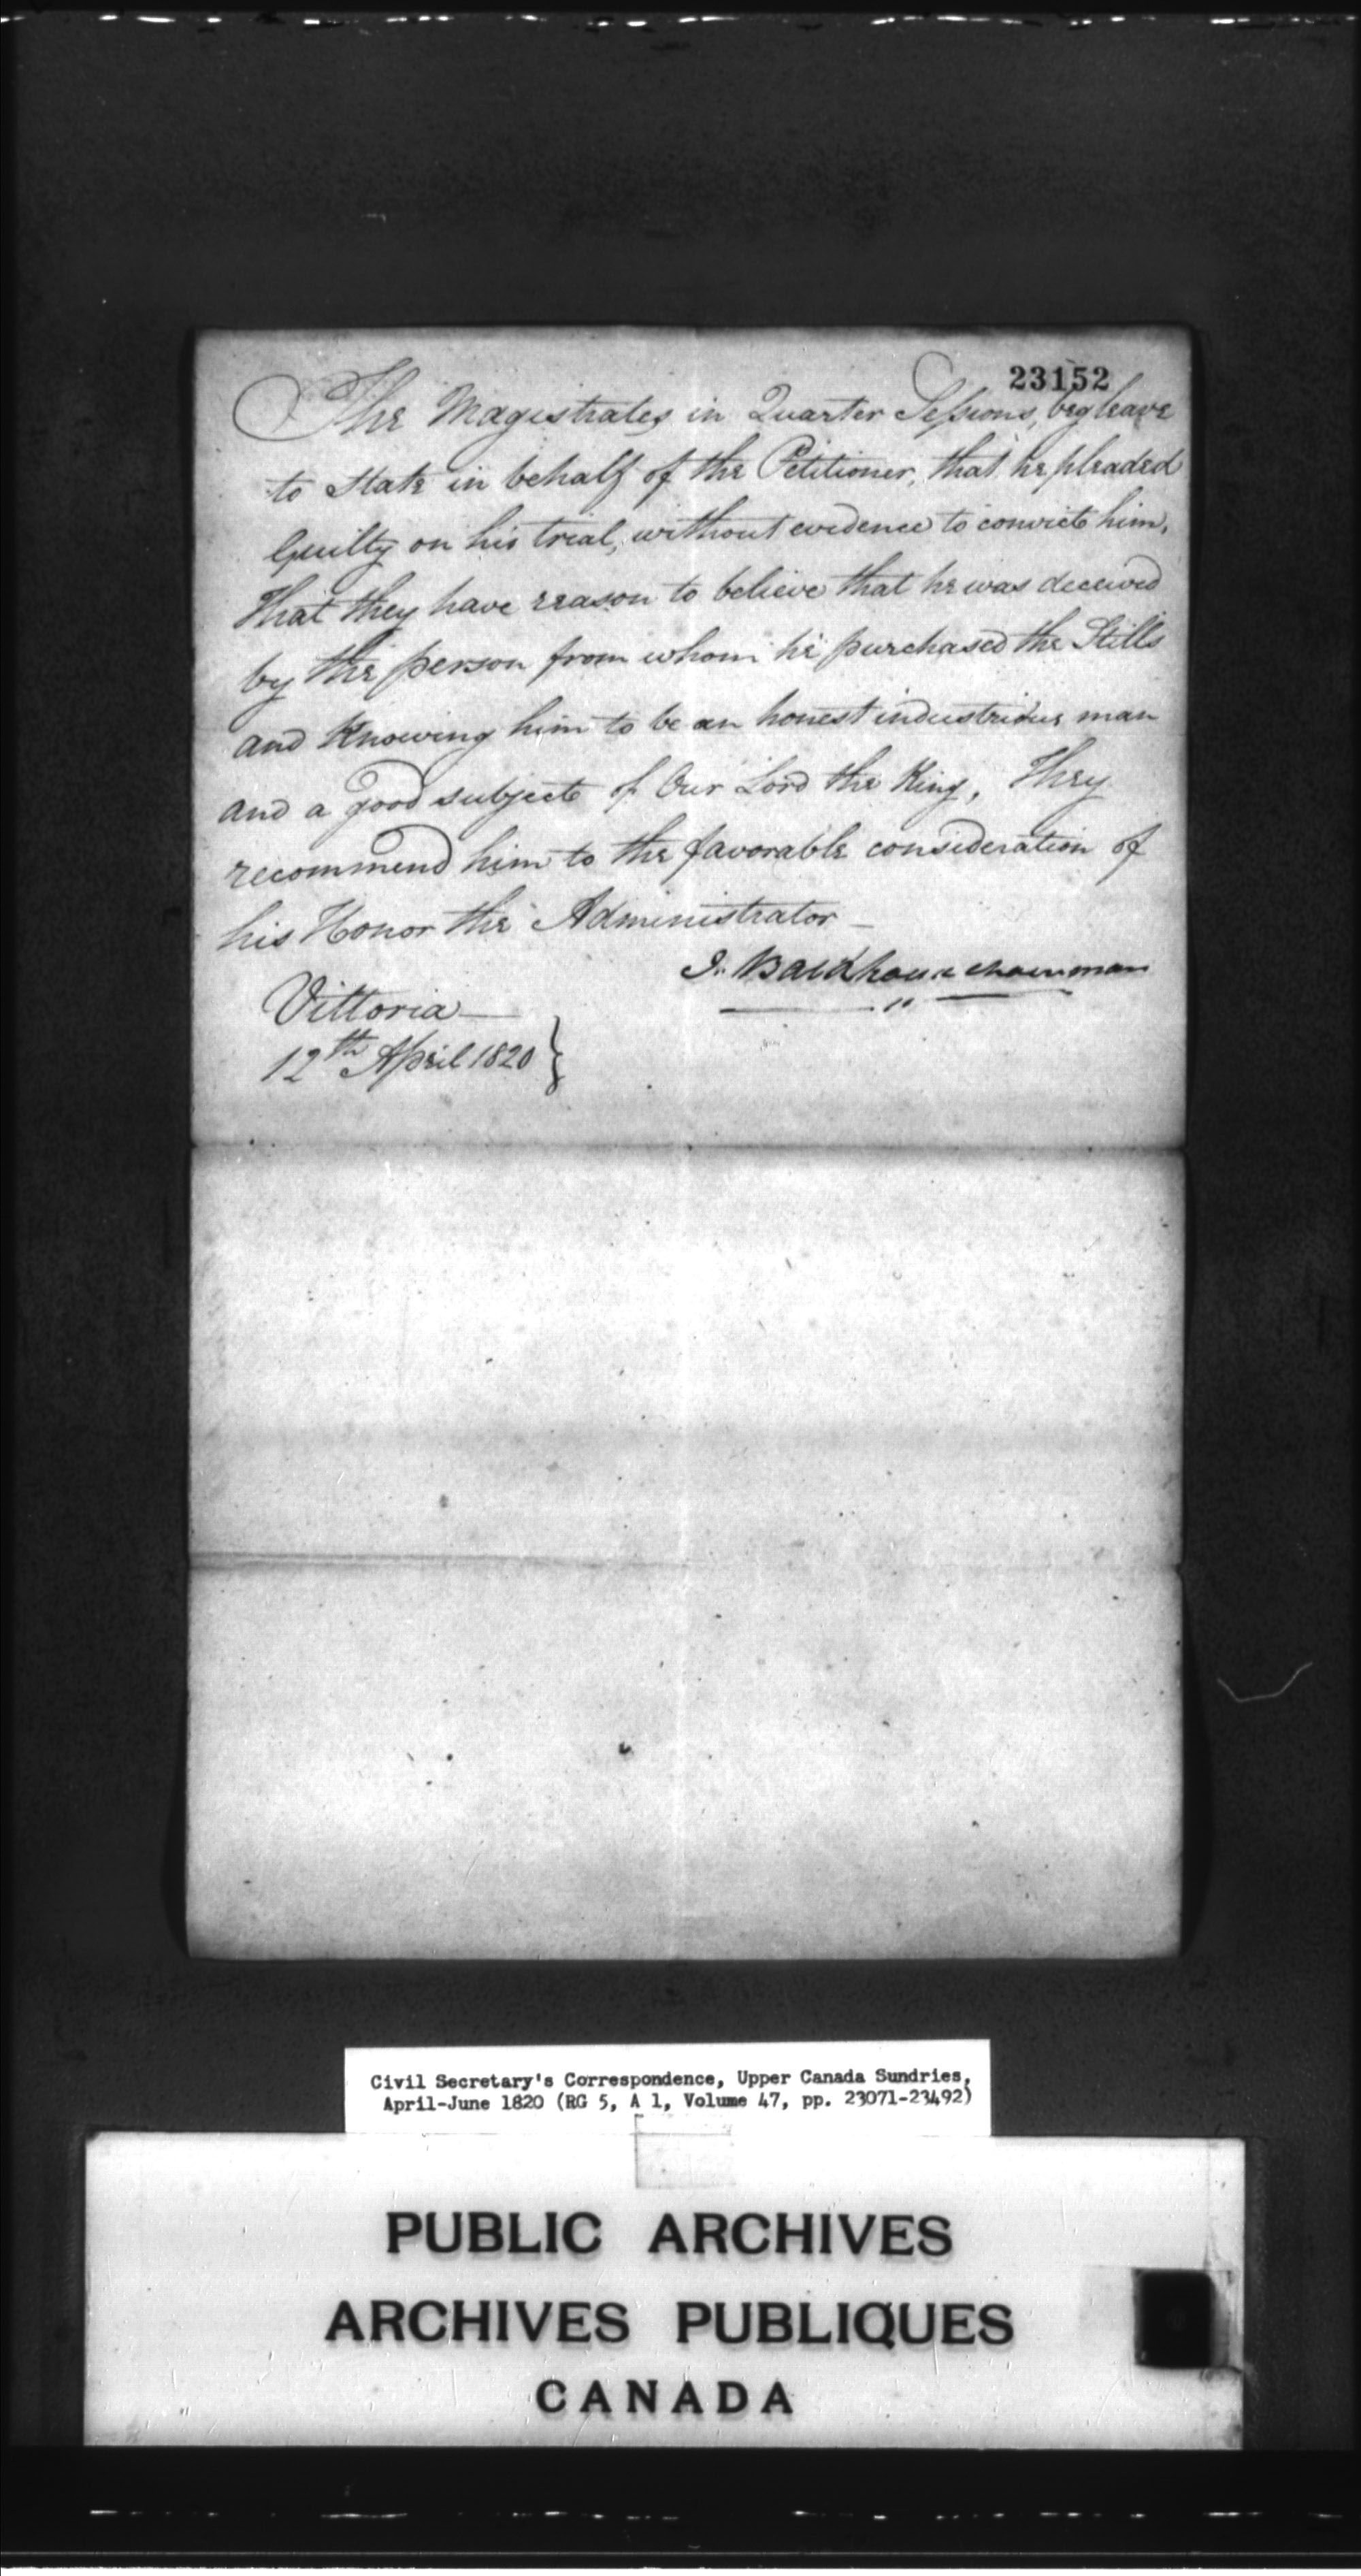 23152
The Magistrates in Quarter Sessions, beg leave
to State in behalf of the Petitioner, that he pleaded
Guilty on his trial, without evidence to convict him,
That they have reason to believe that he was deceived
by the person from whom he purchased the Stills
and Knowing him to be an honest industrious man
and a good subject of Our Lord the King, They
recommend him to the favorable consideration of
his Honor the Administrator —
J. Backhouse chairman
Vittoria —
12th April 1820 }
Civil Secretary's Correspondence, Upper Canada Sundries,
April-June 1820 (RG 5, A 1, Volume 47, pp. 23071-23492)
PUBLIC ARCHIVES
ARCHIVES PUBLIQUES
CANADA